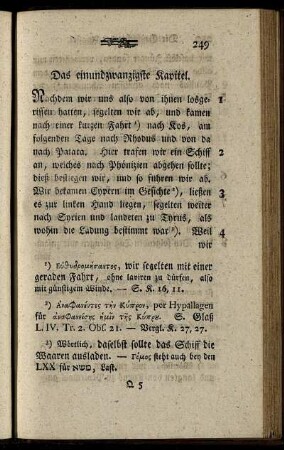 249
Das einundzwanzigste Kapitel.
Nachdem wir uns also von ihnen losge- 1
rissen hatten, segelten wir ab, und kamen
nach einer kurzen Fahrt ¹) nach Kos, am
folgenden Tage nach Rhodus und von da
nach Patara. Hier trafen wir ein Schiff 2
an, welches nach Phönizien abgehen sollte;
dieß bestiegen wir, und so fuhren wir ab.
Wir bekamen Cypern im Gesichte ²), ließen 3
es zur linken Hand liegen, segelten weiter
nach Syrien und landeten zu Tyrus, als
wohin die Ladung bestimmt war ³). Weil 4
wir
¹) ευθυδρομησαντες, wir segelten mit einer
geraden Fahrt, ohne laviren zu dürfen, also
mit günstigem Winde. — S. K. 16, 11.
²) Αναφανεντες την Κυπρον, per Hypallagen
für αναφανεισης ημιν της Κυπρου. S. Glaß
L. IV. Tr. 2. Obs. 21. — Vergl. K. 27, 27.
³) Wörtlich, daselbst sollte das Schiff die
Waaren ausladen. — Γομος steht auch bey den
LXX für משא, Last.
Q 5